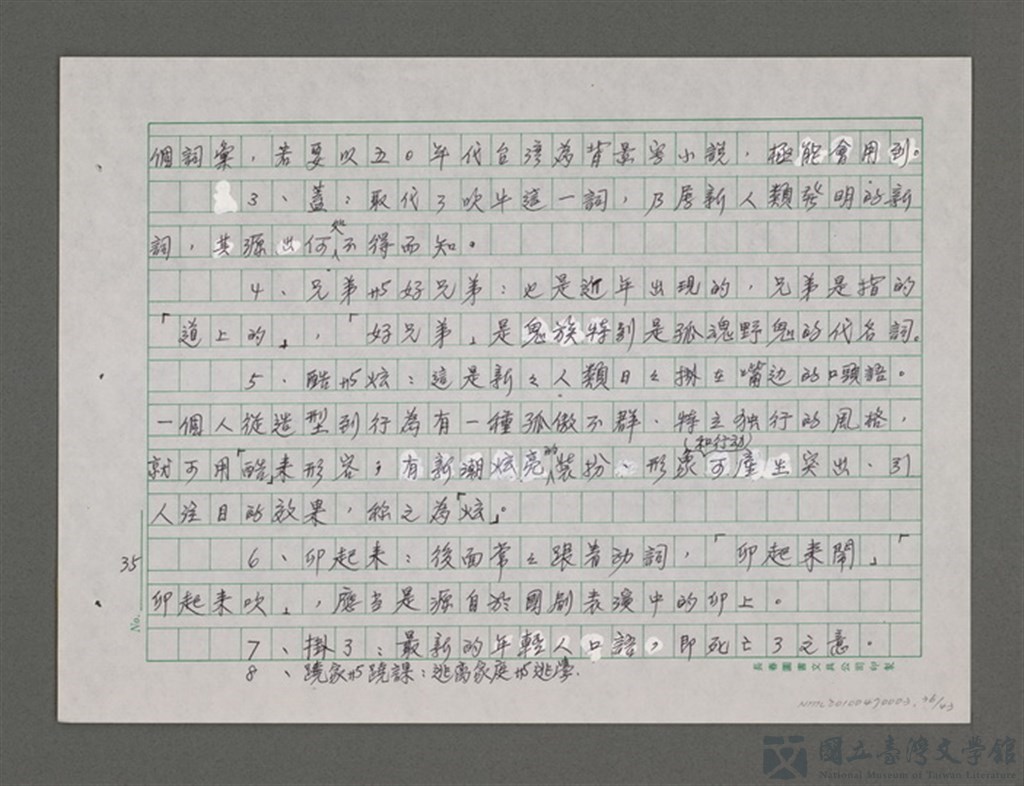 個詞彙，若要以五○年代台湾為背景寫小說，極能會用到。
3、蓋：取代了吹牛這一詞，乃屬新人類發明的新
詞，其源出何處不得而知。
4、兄弟与好兄弟：也是近年出現的，兄弟是指的
「道上的」，「好兄弟」是鬼族特別是孤魂野鬼的代名詞。
5、酷与炫：這是新々人類日々掛在嘴边的口頭語。
一個人從造型到行為有一種孤傲不群、特立独行的風格，
就可用「酷」來形容；有新潮炫亮的裝扮、形象和行动可產生突出、引
人注目的效果，称之為「炫」。
6、卯起来：後面常々跟着动詞，「卯起来鬧」「
卯起来吹」，應当是源自於國劇表演中的卯上。
7、掛了：最新的年輕人口語，即死亡了之意。
8、蹺家与蹺課：逃离家庭与逃學.
35
No.
長春圖書文具公司印製
NMTL20100470003. 36/43
國立臺灣文學館
National Museum of Taiwan Literature